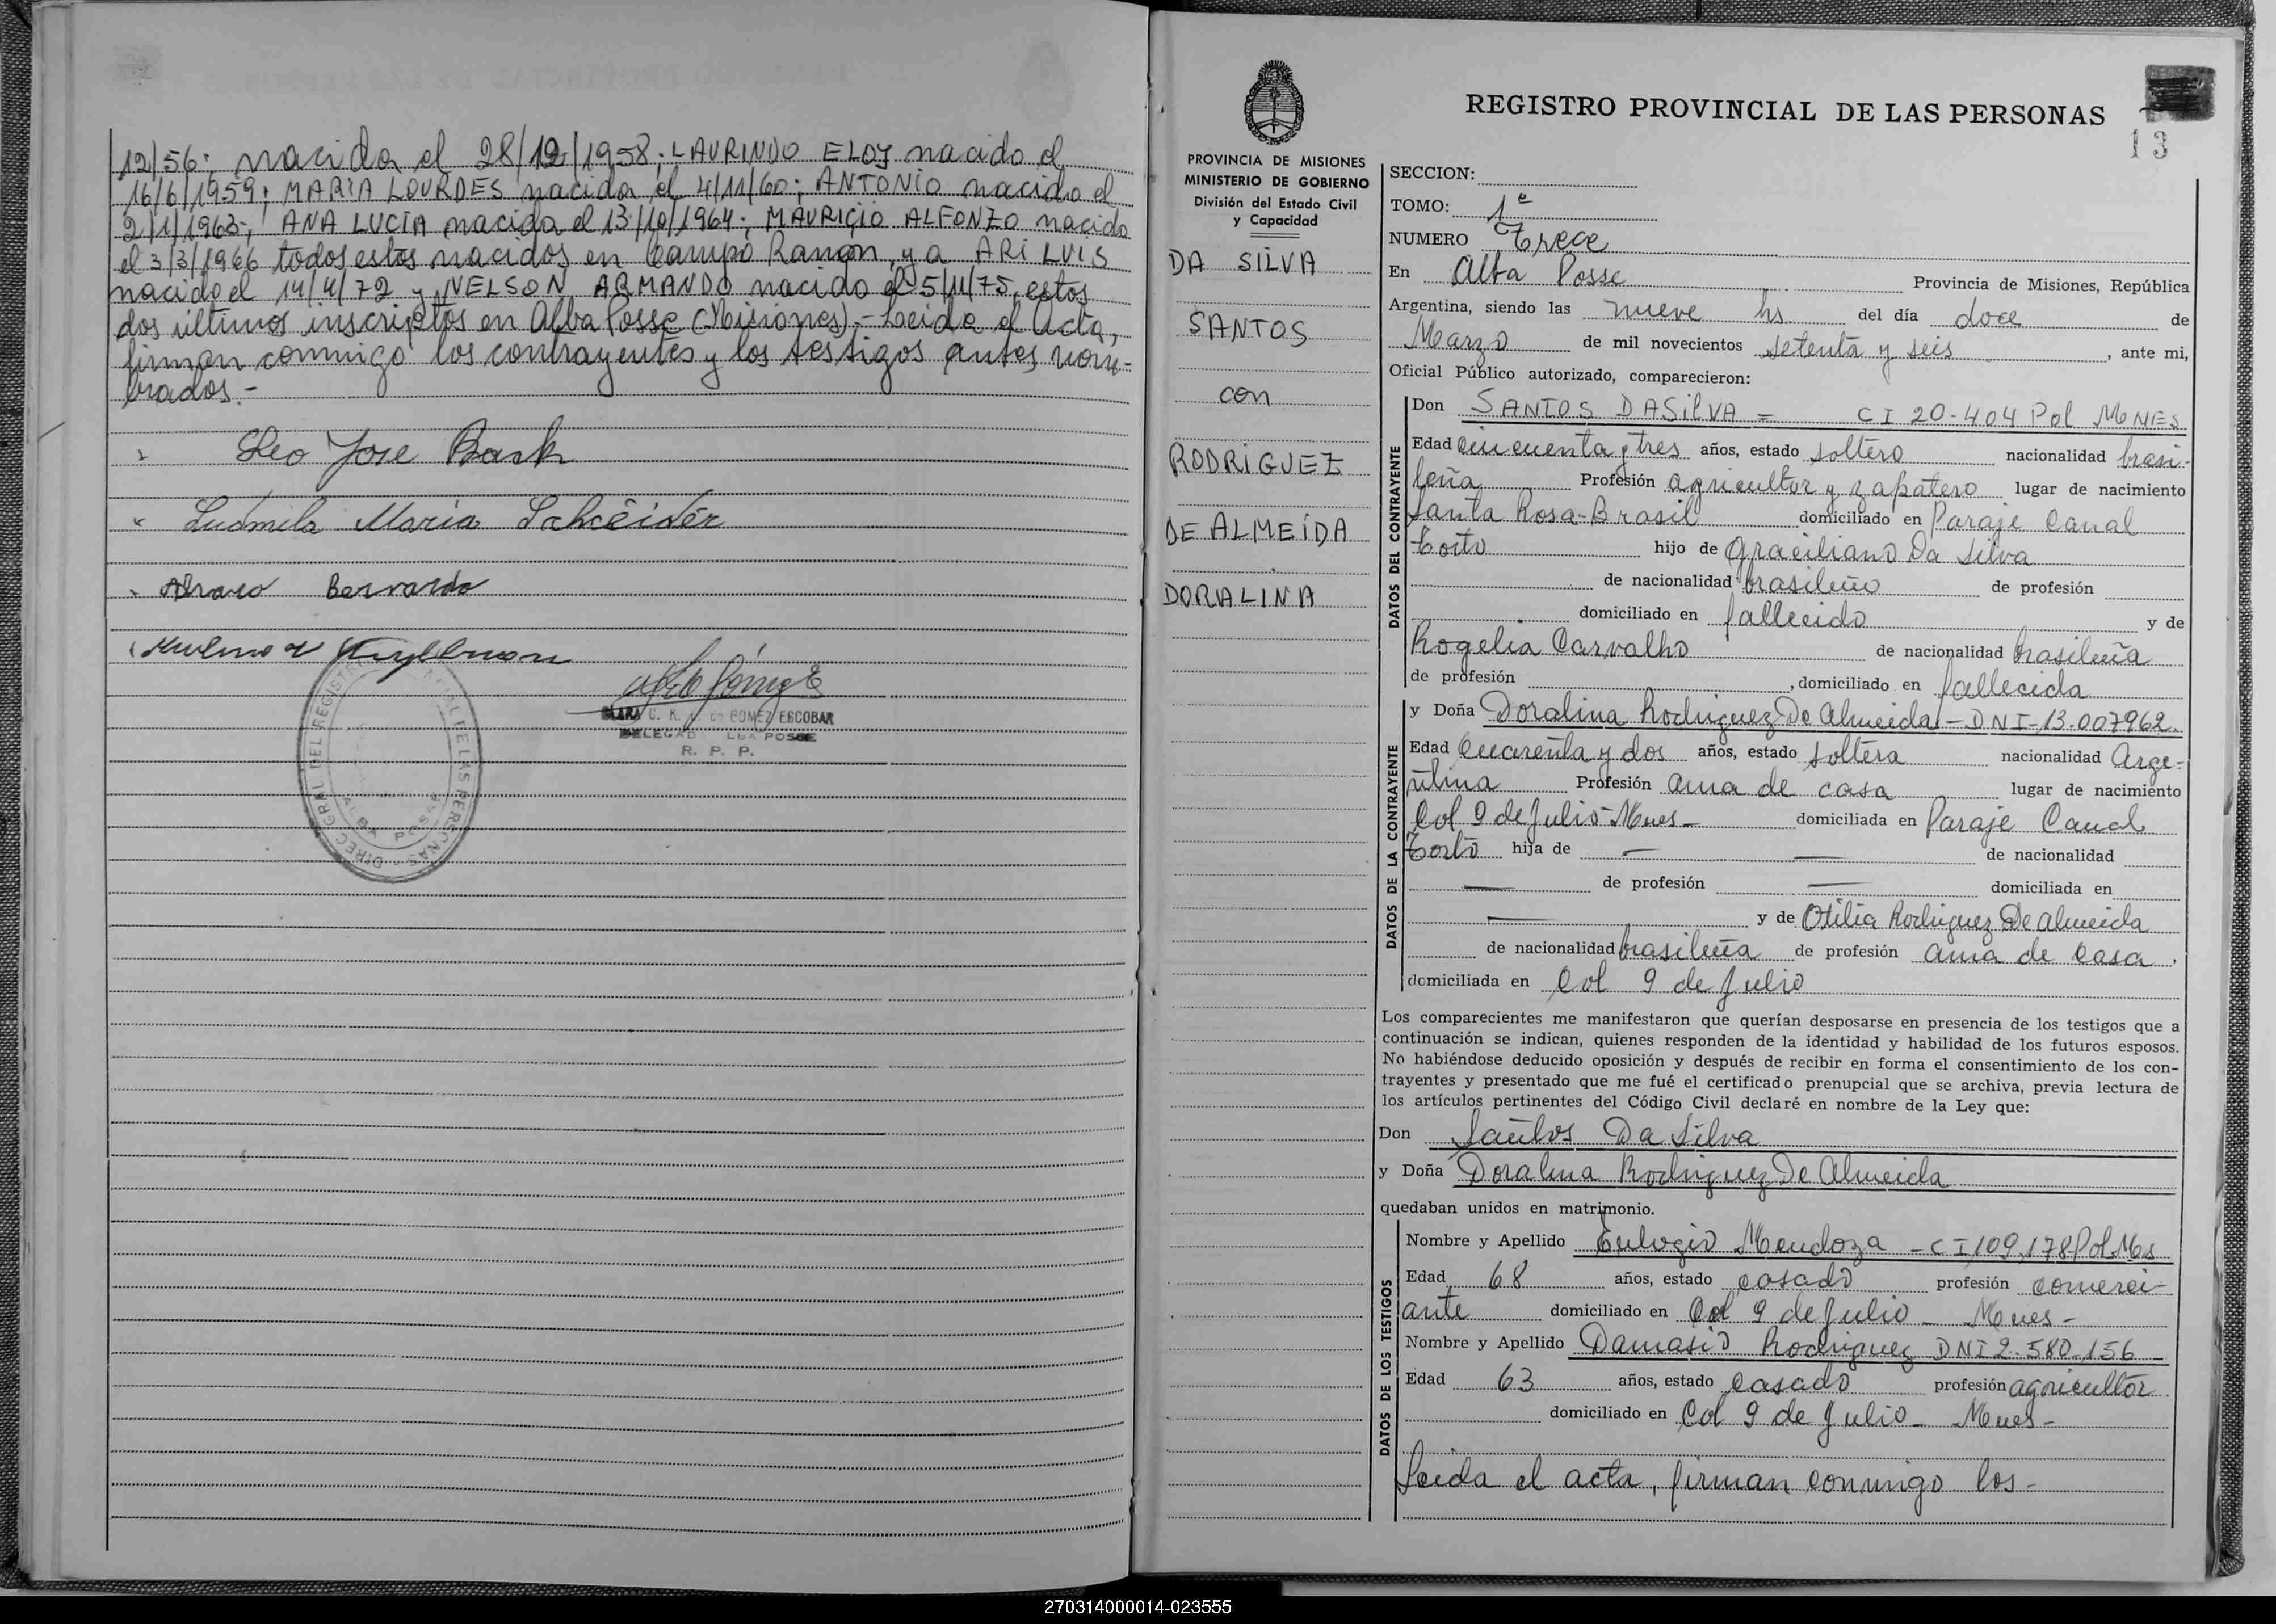 12/56; nacida el 28/12/1958; LAURINDO ELOY nacido el
16/6/1959; MARIA LOURDES nacida el 4/11/60; ANTONIO nacido el
2/1/1963; ANA LUCIA nacida el 13/10/1964; MAURICIO ALFONZO nacido
el 3/3/1966 todos estos nacidos en Campo Ramon, y a ARI LUIS
nacido el 14/4/72 y NELSON ARMANDO nacido el 5/11/75, estos
dos últimos inscriptos en Alba Posse (Misiones).- Leida el Acta,
firman conmigo los contrayentes y los testigos antes nom-
brados.-
Leo Jose Back
Ludmila Maria Schcëider
Bernardo
GOMEZ ESCOBAR
R. P. P.
PROVINCIA DE MISIONES
MINISTERIO DE GOBIERNO
División del Estado Civil
y Capacidad
DA SILVA
SANTOS
con
RODRIGUEZ
DE ALMEIDA
DORALINA
REGISTRO PROVINCIAL DE LAS PERSONAS
13
SECCION:
TOMO: 1º
NUMERO Trece
En Alba Posse Provincia de Misiones, República
Argentina, siendo las nueve hs del día doce de
Marzo de mil novecientos setenta y seis, ante mi,
Oficial Público autorizado, comparecieron:
DATOS DEL CONTRAYENTE
Don SANTOS DA SILVA = CI 20-404 Pol MONES
Edad cincuenta y tres años, estado soltero nacionalidad brasi-
leña Profesión agricultor y zapatero lugar de nacimiento
Santa Rosa-Brasil domiciliado en Paraje Canal
Torto hijo de Graciliano Da Silva
de nacionalidad brasileño de profesión
domiciliado en fallecido y de
Rogelia Carvalho de nacionalidad brasileña
de profesión , domiciliado en fallecida
DATOS DE LA CONTRAYENTE
y Doña Doralina Rodriguez De Almeida - DNI-13.007962
Edad Cuarenta y dos años, estado soltera nacionalidad Arge-
ntina Profesión ama de casa lugar de nacimiento
Col 9 de Julio-Mnes- domiciliada en Paraje Canal
Torto hija de — — de nacionalidad
— de profesión — domiciliada en
— y de Otilia Rodriguez De Almeida
de nacionalidad brasileña de profesión ama de casa,
domiciliada en Col 9 de Julio
Los comparecientes me manifestaron que querían desposarse en presencia de los testigos que a
continuación se indican, quienes responden de la identidad y habilidad de los futuros esposos.
No habiéndose deducido oposición y después de recibir en forma el consentimiento de los con-
trayentes y presentado que me fué el certificado prenupcial que se archiva, previa lectura de
los artículos pertinentes del Código Civil declaré en nombre de la Ley que:
Don Santos Da Silva
y Doña Doralina Rodriguez De Almeida
quedaban unidos en matrimonio.
DATOS DE LOS TESTIGOS
Nombre y Apellido Eulogio Mendoza - CI 109,178 Pol Mns
Edad 68 años, estado casado profesión comerci-
ante domiciliado en Col 9 de Julio - Mnes -
Nombre y Apellido Damasio Rodriguez DNI 2.580.156
Edad 63 años, estado casado profesión agricultor
domiciliado en Col 9 de Julio - Mnes -
Leida el acta, firman conmigo los-
270314000014-023555